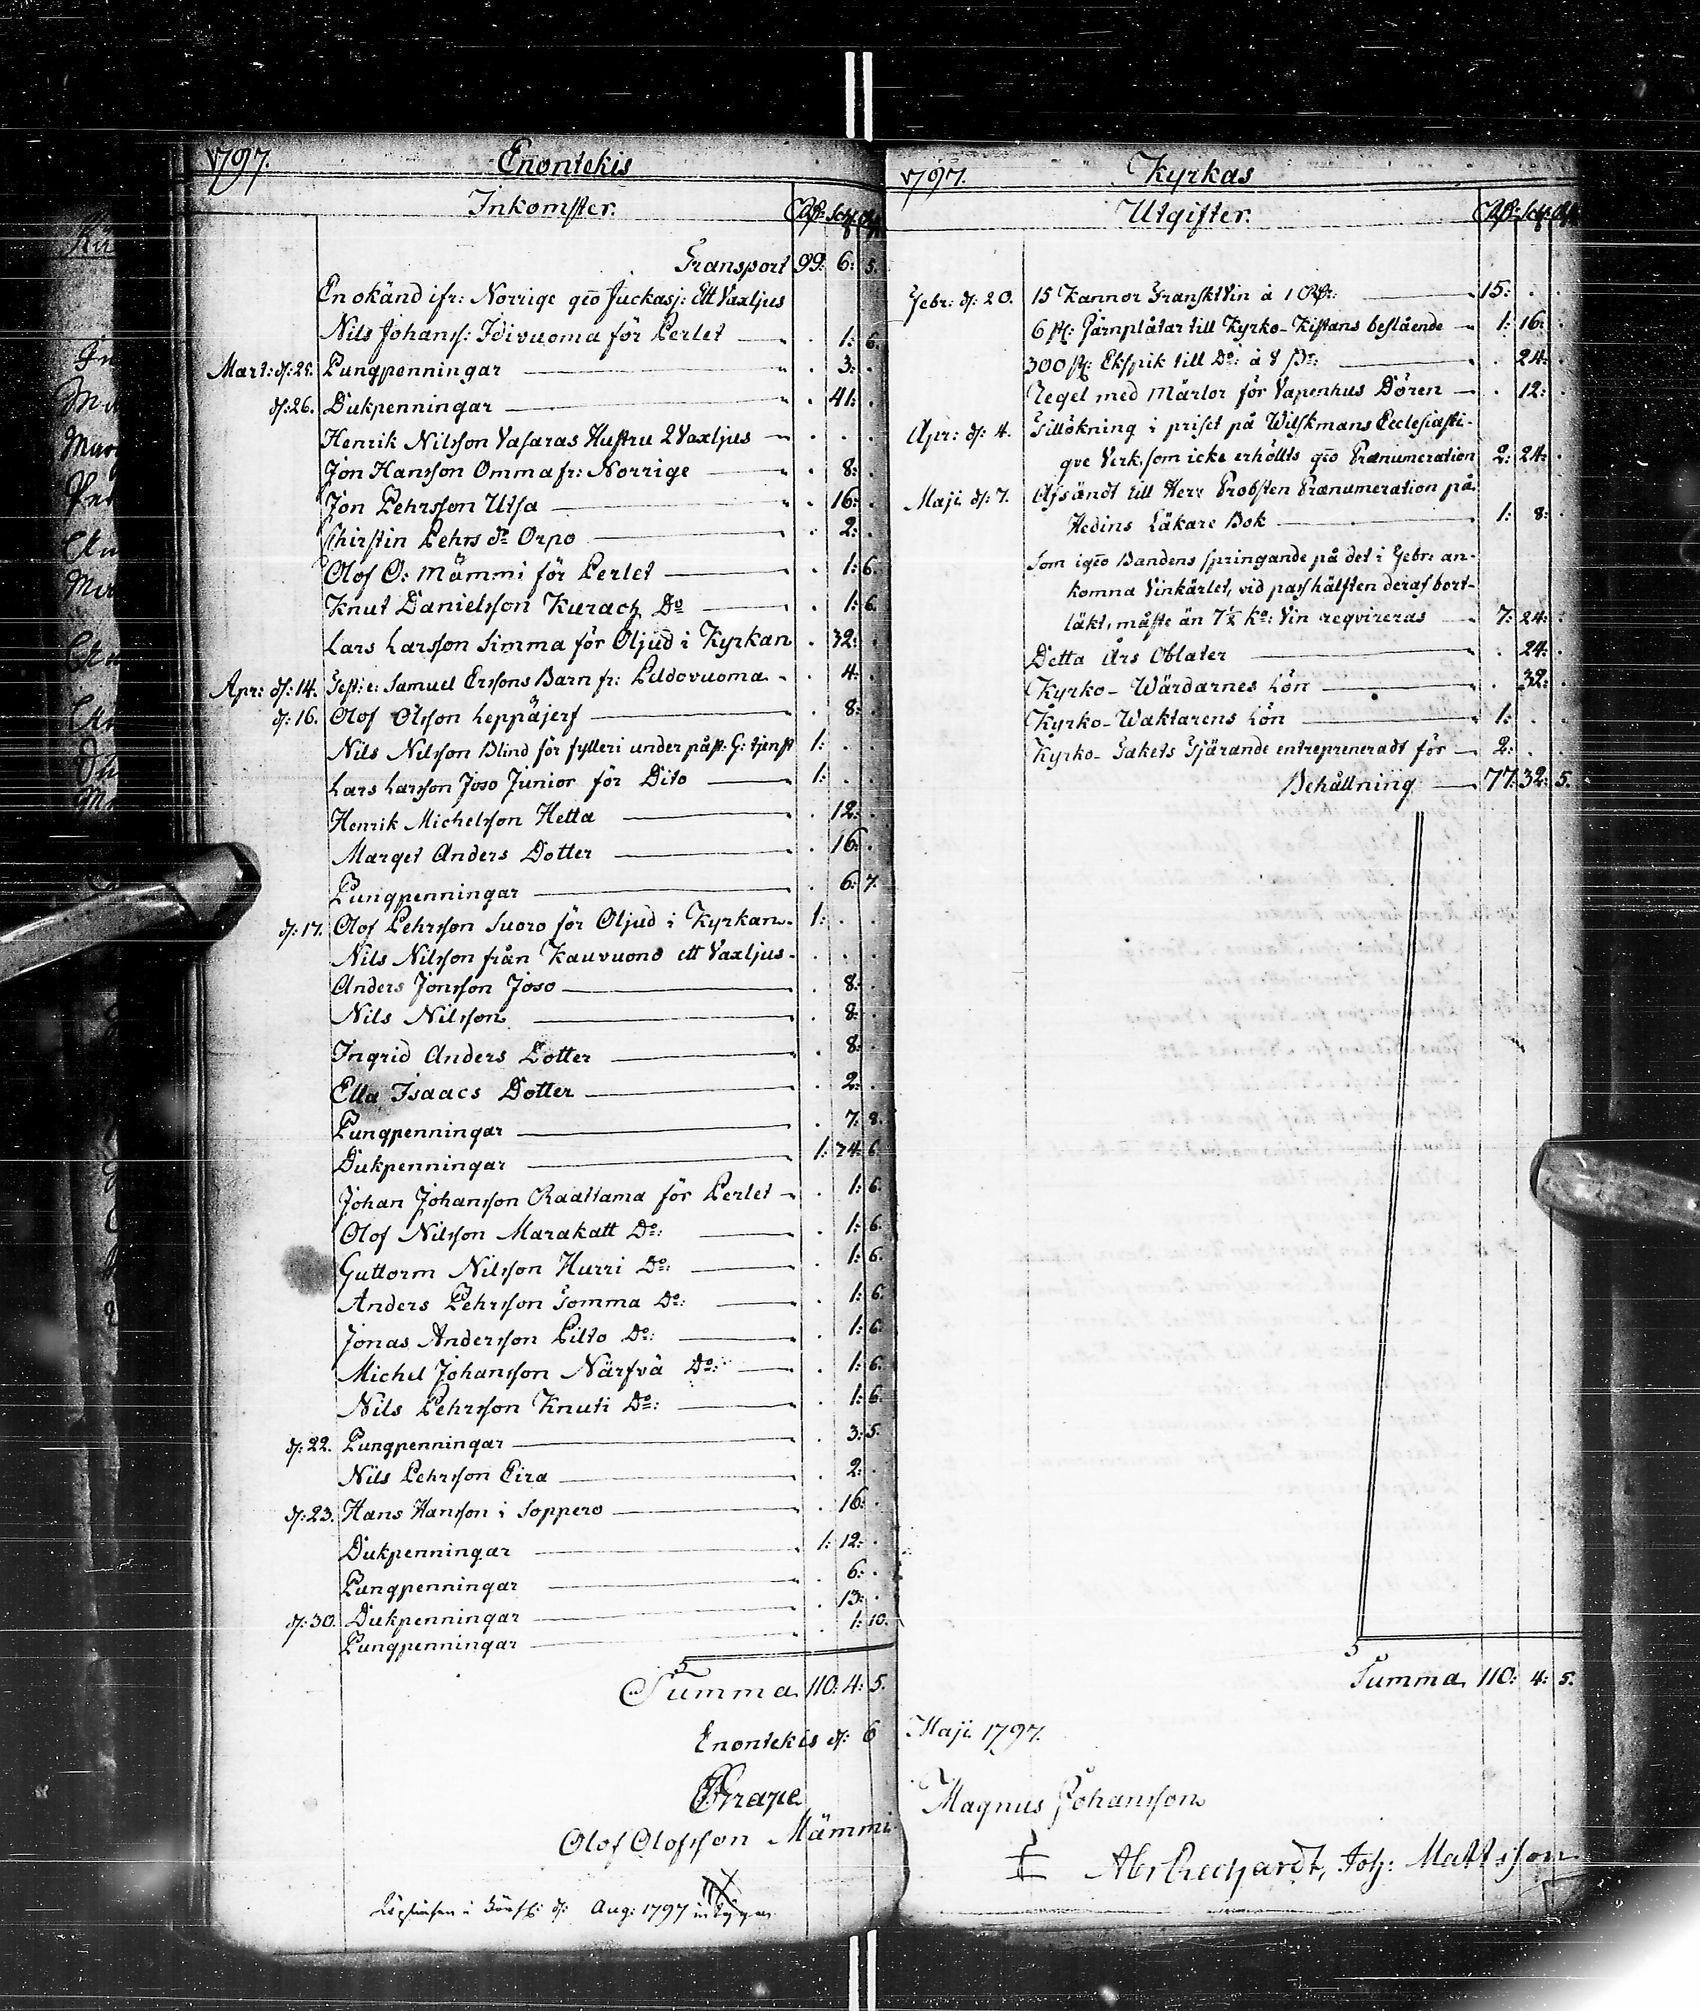 1797. Enontekis
Inkomster. Rdr: Sch: rst:
Transport 99: 6: 5.
En okänd ifr: Norrige geō Juckasj: Ett Vaxljus
Nils Johanss: Idivuoma för Perlet 1: 6.
Mart: d: 25. Pungpenningar 3:
d: 26. Dukpenningar 41:
Henrik Nilsson Vasaras Hustru 2 Vaxljus
Jon Hansson Omma fr: Norrige 8:
Jon Pehrsson Utsa 16:
Chirstin Pehrs dr Orpo 2:
Olof O: Mämmi för Perlet 1: 6.
Knut Danielsson Kuracz Do 1: 6
Lars Larsson Simma för Oljud i Kyrkan 32:
Apr: d: 14. Test: e: Samuel Erssons Barn fr: Peldovuoma 4:
d: 16. Olof Olsson Leppäjerf 8:
Nils Nilsson Blind för fylleri under påst: G: tjenst 1:
Lars Larsson Joso Junior för Dito 1:
Henrik Michelsson Hetta 12:
Marget Anders Dotter 16:
Pungpenningar 6: 7.
d: 17. Olof Pehrsson Suoro för Oljud i Kyrkan 1:
Nils Nilsson från Kauvuono ett Vaxljus
Anders Jonsson Joso 8:
Nils Nilsson 8:
Ingrid Anders Dotter 8:
Ella Isaacs Dotter 2:
Pungpenningar 7: 8.
Dukpenningar 1: 24: 6
Johan Johansson Raattama för Perlet 1: 6
Olof Nilsson Marakatt Do: 1: 6.
Guttorm Nilsson Hurri Do: 1: 6.
Anders Pehrsson Tomma Do: 1: 6
Jonas Andersson Pilto Do: 1: 6
Michel Johansson Närfvä Do: 1: 6.
Nils Pehrsson Knuti Do: 1: 6.
d: 22. Pungpenningar 3: 5.
Nils Pehrsson Eira 2:
d: 23. Hans Hansson i Soppero 16:
Dukpenningar 1: 12:
Pungpenningar 6:
d: 30. Dukpenningar 13:
Pungpenningar 1: 10.
Summa 110: 4: 5.
Enontekis d: 6
Grape
Olof Olofsson Mämmi
d: Aug: 1797 intygar
1797. Kyrkas
Utgifter. Rdr: Sch: rst:
Febr: d: 20. 15 Kannor Franskt Vin à 1 Rdr: 15:
6 st: Järnplåtar till Kyrko-Kistans beslående 1: 16:
300 st: Ekspik till Do: à 8 st: 24:
Regel med Märlor för Vapenhus Dören 12:
Apr: d: 4. Tillökning i priset på Wilskmans Ecclesiasti-
qve Verk, som icke erhölts geō Prænumeration 2: 24:
Maji d: 7. Afsändt till Herr Probsten Prænumeration på
Hedins Läkare Bok 1: 8:
Som igeō Bandens springande på det i Febr: an-
komna Vinkärlet, vid pass hälften deraf bort-
läkt, måste än 7 1/2 Ka: Vin reqvireras 7: 24:
Detta Års Oblater 24:
Kyrko-Wärdarnes Lön 32:
Kyrko-Waktarens Lön 1:
Kyrko-Takets Tjärande entrepreneradt för 2:
Behållning 77: 32: 5.
Summa 110: 4: 5.
Maji 1797.
Magnus Johansson
Joh: Mattsson